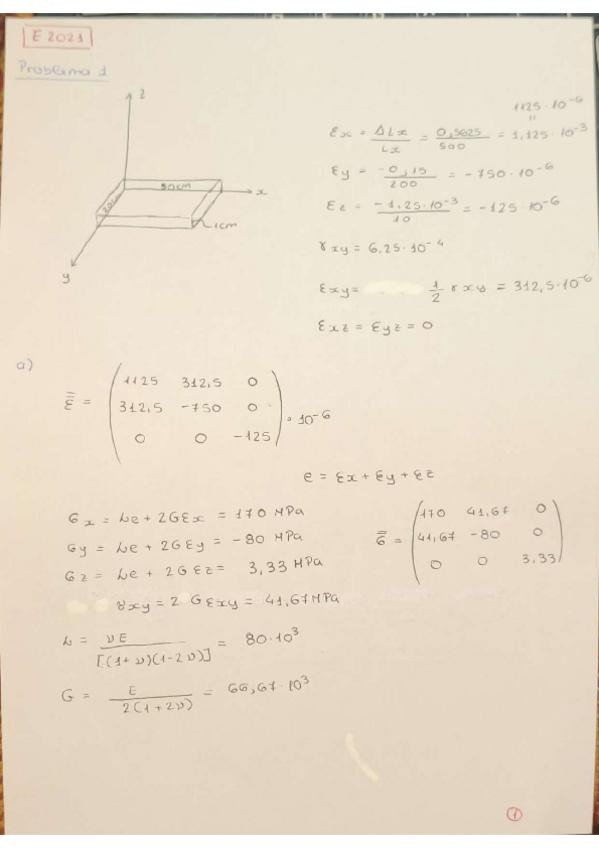 E 2021
Problema 1
z
50cm
x
20cm
1cm
y
1125·10⁻⁶
εx = ΔLx/Lx = 0,5625/500 = 1,125·10⁻³
εy = -0,15/200 = -750·10⁻⁶
εz = -1,25·10⁻³/10 = -125·10⁻⁶
γxy = 6,25·10⁻⁴
εxy = 1/2 γxy = 312,5·10⁻⁶
εxz = εyz = 0
a)
ε̿ = (1125 312,5 0
312,5 -750 0
0 0 -125) · 10⁻⁶
e = εx + εy + εz
σx = λe + 2Gεx = 170 MPa
σy = λe + 2Gεy = -80 MPa
σz = λe + 2Gεz = 3,33 MPa
γxy = 2 Gεxy = 41,67 MPa
σ̿ = (170 41,67 0
41,67 -80 0
0 0 3,33)
λ = νE/[(1+ν)(1-2ν)] = 80·10³
G = E/2(1+2ν) = 66,67·10³
1